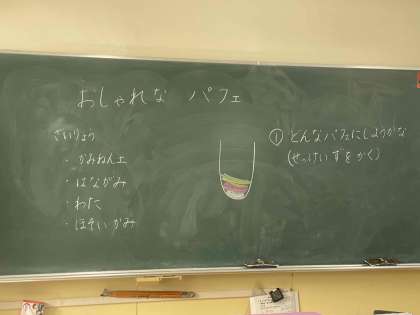 おしゃれな パフェ
ざいりょう
・かみねんど
・はながみ
・わた
・ほそいがみ
① どんなパフェにしようかな
(せっけいずをかく)